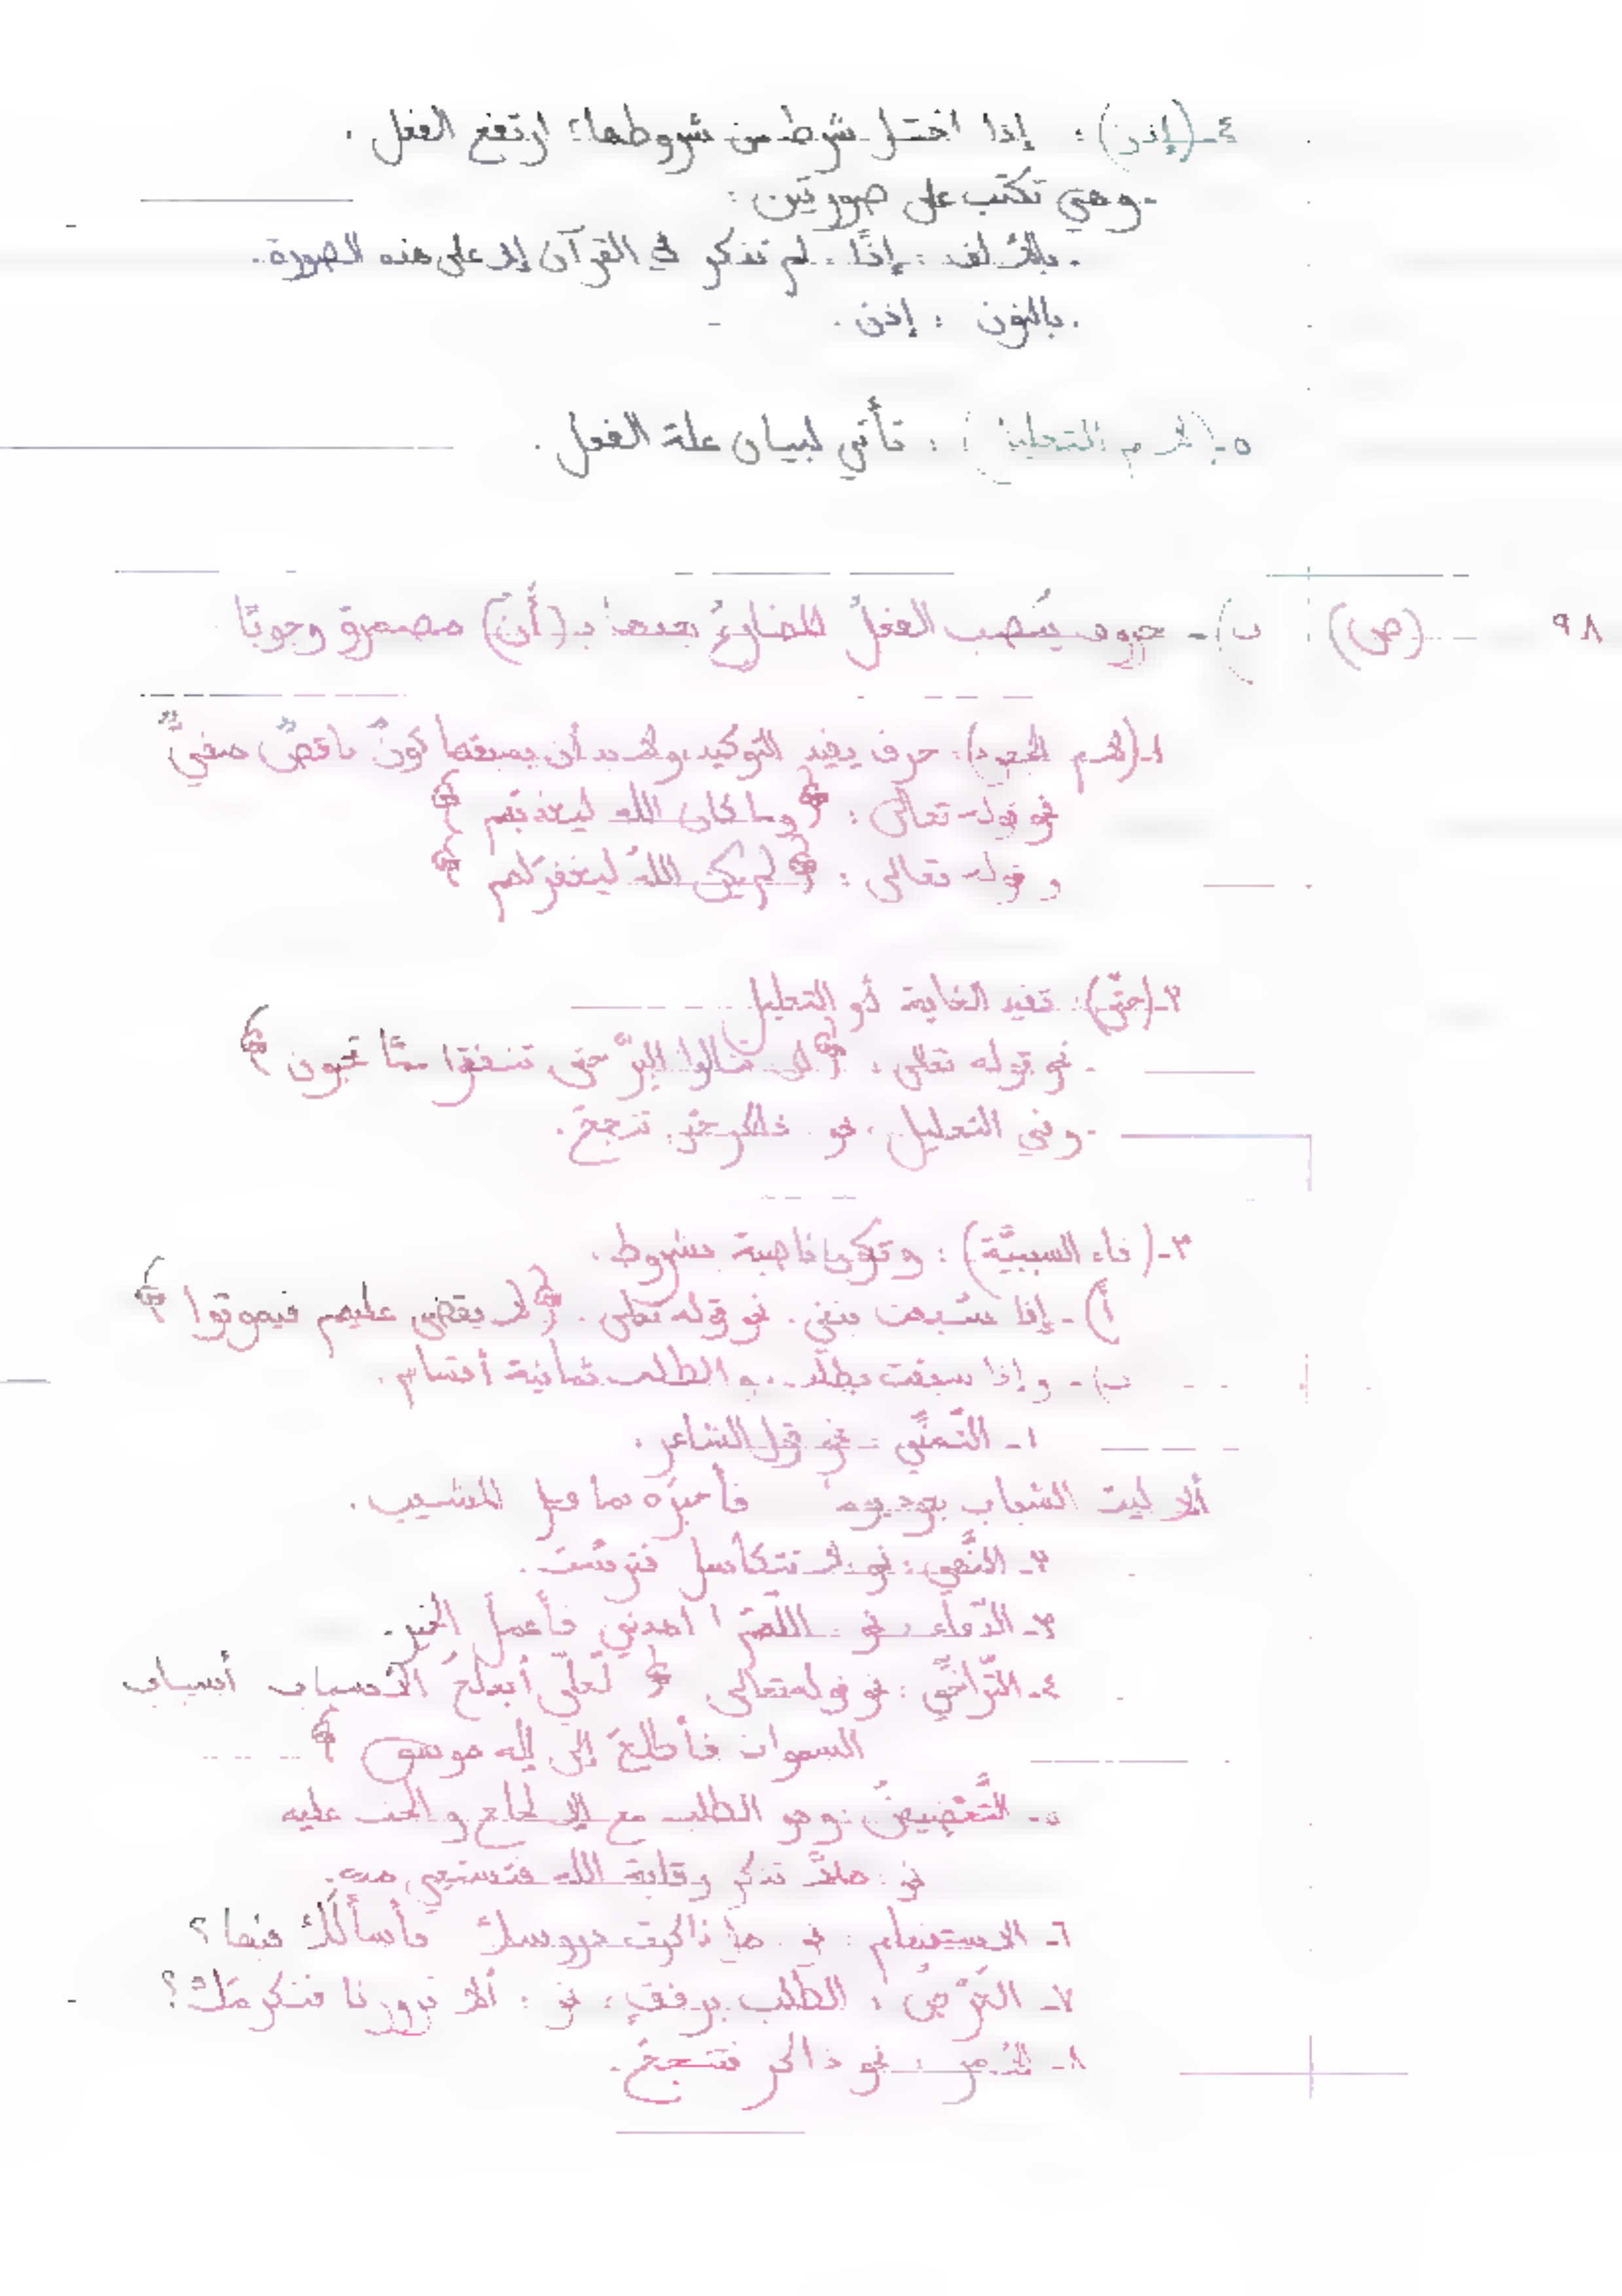 ٤-(إذن): إذا اختل شرط من شروطها؛ ارتفع الفعل.
-وهي تكتب على صورتين:
. بالألف: إذًا. لم تذكر في القرآن إلا على هذه الصورة.
. بالنون: إذن.
٥-(لام التعليل): تأتي لبيان علة الفعل.
٩٨ (ص) ب)- حروف يُنصب الفعلُ المضارعُ بعدها بـ(أن) مضمرة وجوبًا
١-(لام الجحود): حرف يفيد التوكيد، ولابد أن يسبقها كونٌ ناقصٌ منفيٌّ
نحو قوله تعالى: ﴿وما كان الله ليعذبهم﴾
وقوله تعالى: ﴿لم يكن اللهُ ليغفر لهم﴾
٢-(حتّى): تفيد الغاية أو التعليل
-نحو قوله تعالى: ﴿لن تنالوا البرّ حتى تنفقوا ممّا تحبون﴾
-وفي التعليل، نحو حتى تنجحَ.
٣-(فاء السببيّة): وتكون ناصبة بشروط.
أ)-إذا سُبقت بنفي. نحو قوله تعالى: ﴿لا يقضى عليهم فيموتوا﴾
ب)- وإذا سبقت بطلب، والطلب ثمانية أقسام.
١- التّمنّي: نحو قول الشاعر:
ألا ليت الشباب يعود يومًا فأخبرَه بما فعل المشيب.
٢- النّهي: نحو: لا تتكاسل فترسُبَ.
٣- الدّعاء: نحو: اللّهمّ اهدني فأعملَ الخير.
٤- التّرجّي: نحو قوله تعالى ﴿لعلّي أبلغُ الأسباب أسباب
السموات فأطلعَ إلى إله موسى﴾
٥- التّحضيض: وهو الطلب مع الإلحاح والحث عليه
نحو: هلّا تذكر رقابة الله فتستحي منه.
٦- الاستفهام: نحو: هل ذاكرت دروسك فأسألَك فيها؟
٧- العَرْض: الطلب برفقٍ، نحو: ألا تزورنا فنكرمَك؟
٨- الأمر: نحو: ذاكر فتنجحَ.